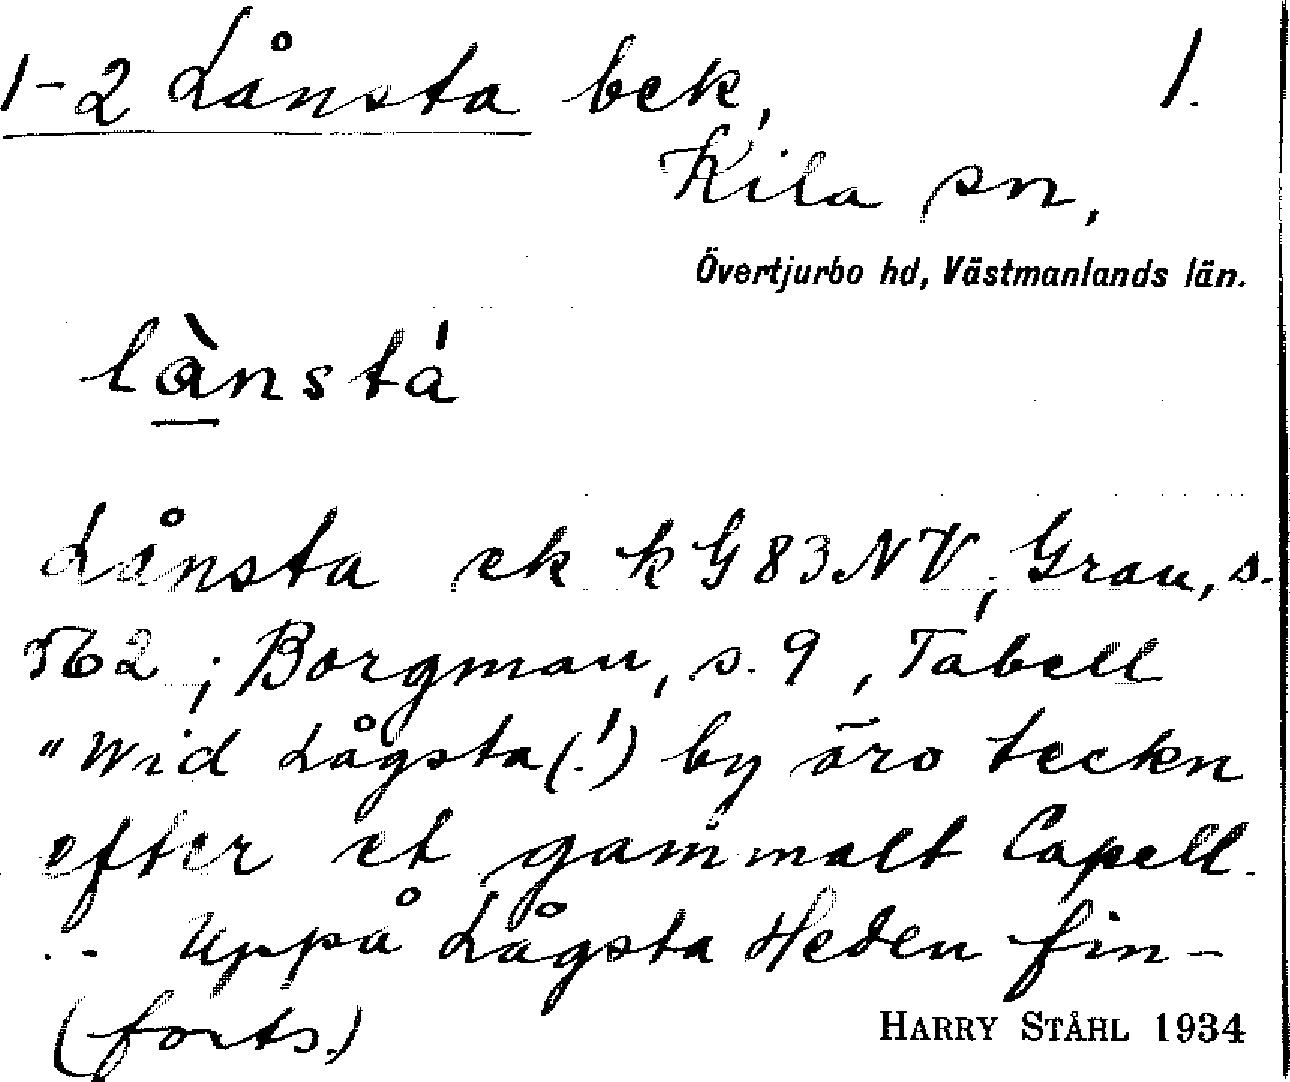 1-2 Lånsta bek, 1.
Kila sn,
Övertjurbo hd, Västmanlands län.
lànstá
Lånsta ek k G 83 NV; Grau, s.
562; Borgman, s. 9, Tabell
"Wid Lågsta(!) by äro teckn
efter et gammalt Capell.
.. Uppå Lågsta Heden fin-
(forts.)
HARRY STÅHL 1934